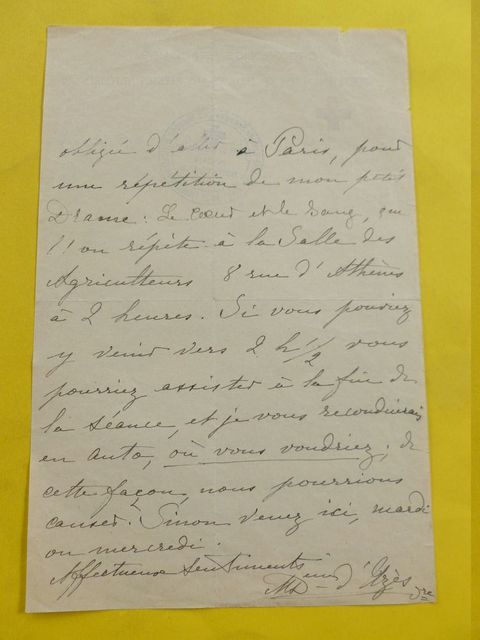 obligée d'aller à Paris, pour
une répétition de mon petit
Drame: Le Cœur et le Sang, que
l'on répète à la Salle des
Agriculteurs 8 rue d'Athènes
à 2 heures. Si vous pouviez
y venir vers 2 h 1/2 vous
pourriez assister à la fin de
la séance, et je vous reconduirais
en auto, où vous voudriez; de
cette façon, nous pourrions
causer. Sinon venez ici, mardi
ou mercredi.
Affectueux sentiments
d'Uzès